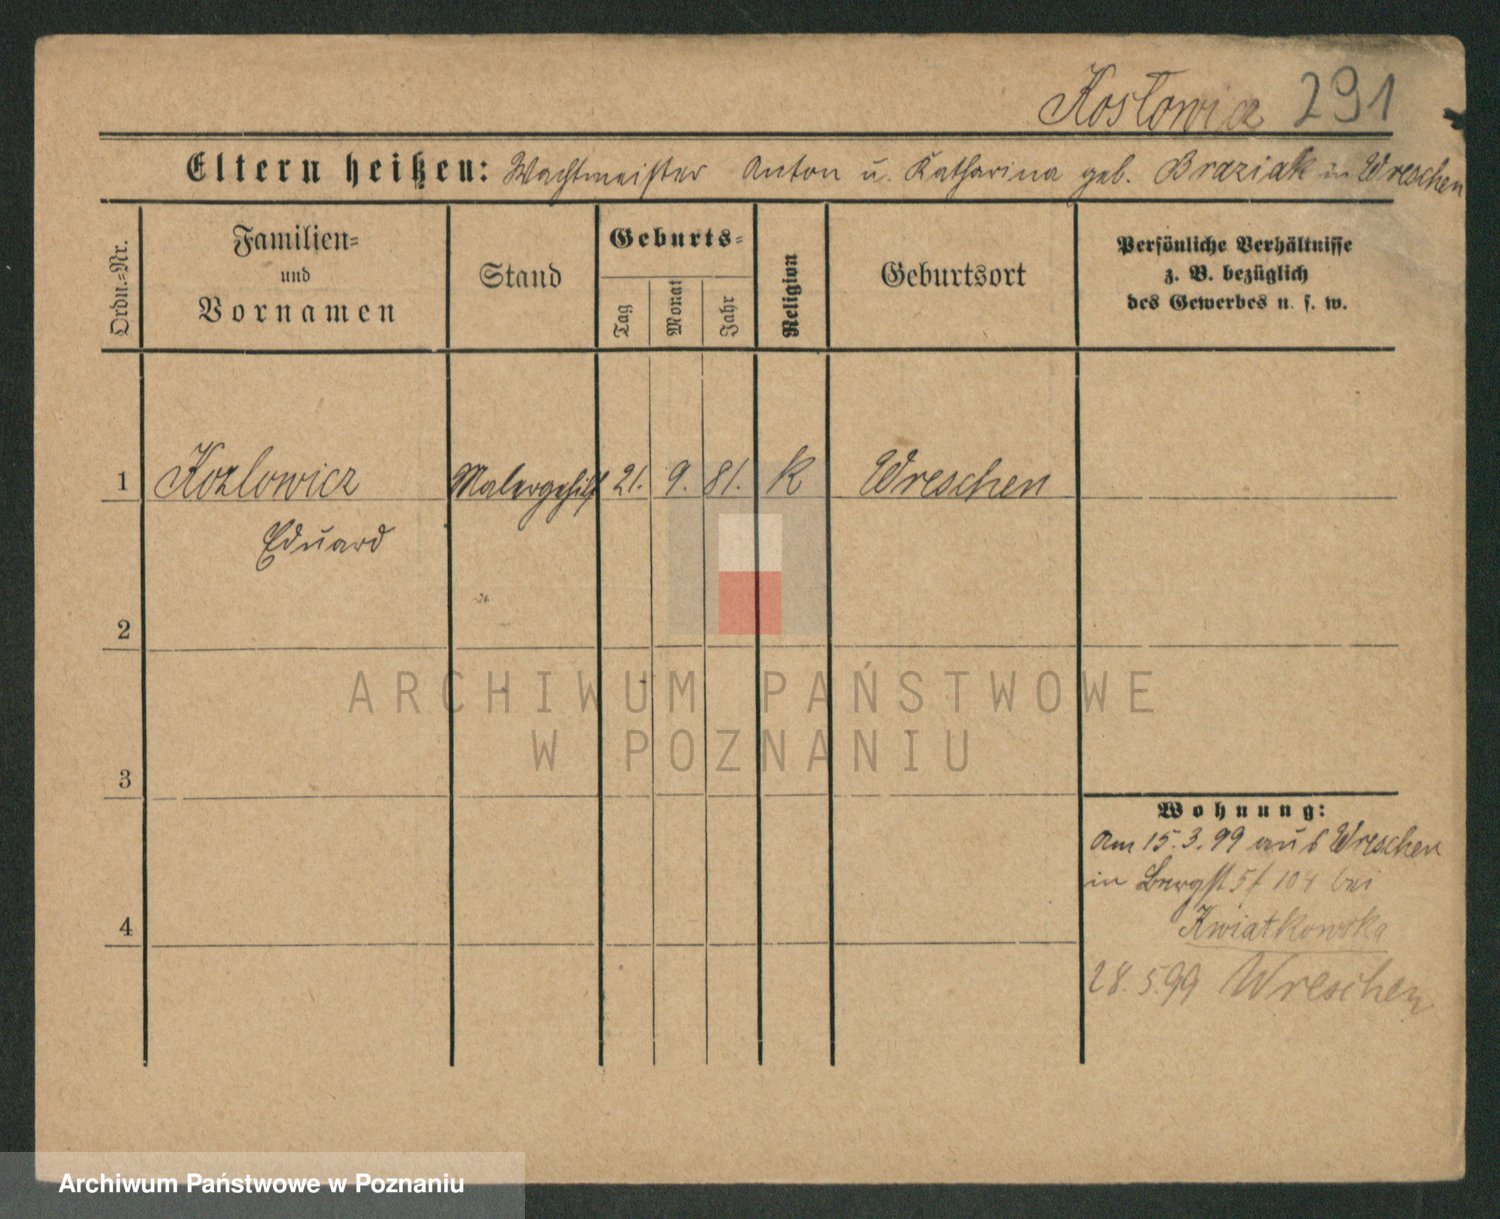 Kosłowicz 291
Eltern heißen: Wachtmeister Anton u. Katharina geb. Braziak in Wreschen
Ordn.=Nr.
Familien=
und
Vornamen
Stand
Geburts=
Tag
Monat
Jahr
Religion
Geburtsort
Persönliche Verhältnisse
z. B. bezüglich
des Gewerbes u. s. w.
1 Kozlowicz Malergehilf 21. 9. 81. K Wreschen
Eduard
2
ARCHIWUM PAŃSTWOWE
W POZNANIU
3
Wohnung:
Am 15.3.99 aus Wreschen
in Bergst 104 bei
4
Kwiatkowska
28.5.99 Wreschen
Archiwum Państwowe w Poznaniu